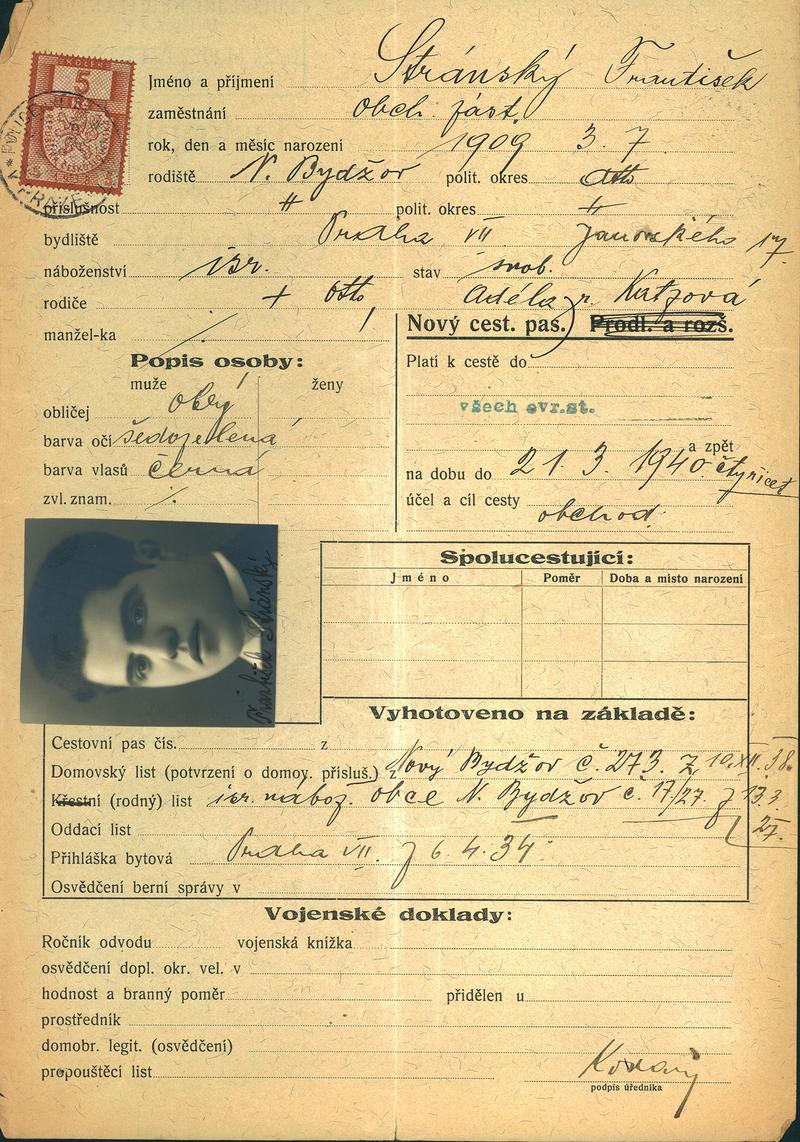 5
Jméno a příjmení Stránský František
zaměstnání obch. zást.
rok, den a měsíc narození 1909 3. 7
rodiště N. Bydžov polit. okres dtto
příslušnost " polit. okres "
bydliště Praha VII Janovského 17
náboženství isr. stav svob.
rodiče + Otto, Adéla r. Katzová
manžel-ka /.
Nový cest. pas. Prodl. a rozš.
Popis osoby:
muže ženy
obličej
barva očí šedozelená
barva vlasů černá
zvl. znam. /.
Platí k cestě do
všech evr.st.
a zpět
na dobu do 21. 3. 1940 čtyřicet
účel a cíl cesty
obchod.
František Stránský
Spolucestující:
Jméno Poměr Doba a místo narození
Vyhotoveno na základě:
Cestovní pas čís. z
Domovský list (potvrzení o domov. přísluš.) z Nový Bydžov č. 273. z 10.XII.38.
Křestní (rodný) list isr. nábož. obce N. Bydžov č. 17/27. z 13.3.
27.
Oddací list
Přihláška bytová Praha VII. z 6.4.34.
Osvědčení berní správy v
Vojenské doklady:
Ročník odvodu vojenská knížka
osvědčení dopl. okr. vel. v
hodnost a branný poměr přidělen u
prostředník
domobr. legit. (osvědčení)
propouštěcí list
podpis úředníka